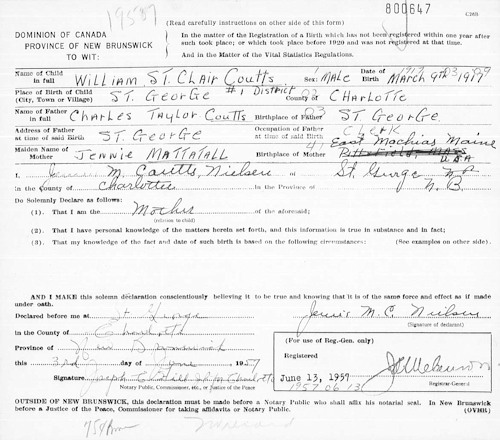 19587
800647
(Read carefully instructions on other side of this form)
DOMINION OF CANADA
PROVINCE OF NEW BRUNSWICK
TO WIT:
In the matter of the Registration of a Birth which has not been registered within one year after such took place; or which took place before 1920 and was not registered at that time.
And in the Matter of the Vital Statistics Regulations.
Name of Child in full WILLIAM ST. CLAIR Coutts Sex: MALE Date of Birth MARCH 9TH
Place of Birth of Child (City, Town or Village) ST. GEORGE #1 District County of CHARLOTTE
Name of Father in full CHARLES TAYLOR COUTTS Birthplace of Father ST. GEORGE.
Address of Father at time of said Birth ST. GEORGE Occupation of Father at time of said Birth CLERK
Maiden Name of Mother JENNIE MATTATALL Birthplace of Mother East Machias Maine USA
I, M. Coutts, Nielsen of St. George N.B.
in the County of Charlotte in the Province of N.B.
Do Solemnly Declare as follows:
(1). That I am the Mother of the aforesaid;
(relation to child)
(2). That I have personal knowledge of the matters herein set forth, and this information is true in substance and in fact;
(3). That my knowledge of the fact and date of such birth is based on the following circumstances: (See examples on other side).
AND I MAKE this solemn declaration conscientiously believing it to be true and knowing that it is of the same force and effect as if made under oath.
Declared before me at St George
in the County of Charlotte
Province of New Brunswick
this 3rd day of June 1957
Signature Joseph
Notary Public, Commissioner, etc., or Justice of the Peace.
Jennie M. C. Nielsen
(Signature of declarant)
(For use of Reg.-Gen. only)
Registered
June 13, 1957
1957 06 13
Registrar General
OUTSIDE OF NEW BRUNSWICK, this declaration must be made before a Notary Public who shall affix his notarial seal. In New Brunswick before a Justice of the Peace, Commissioner for taking affidavits or Notary Public.
(OVER)